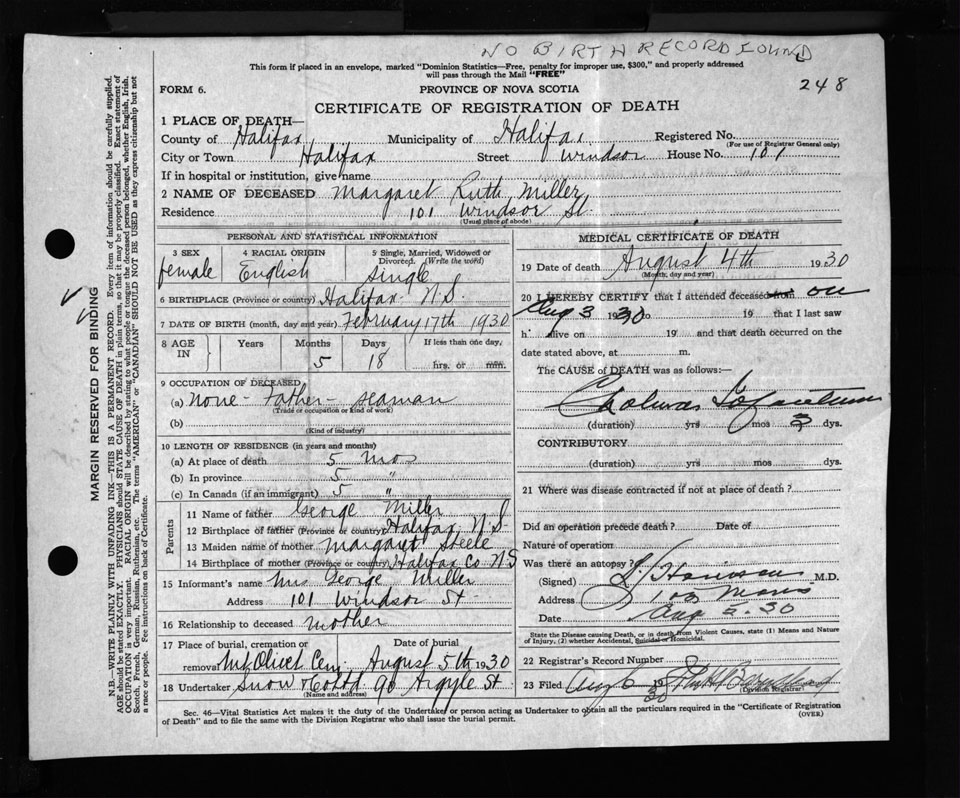 NO BIRTH RECORD FOUND
This form if placed in an envelope, marked "Dominion Statistics—Free, penalty for improper use, $300," and properly addressed
will pass through the Mail "FREE"
248
FORM 6.
PROVINCE OF NOVA SCOTIA
CERTIFICATE OF REGISTRATION OF DEATH
1 PLACE OF DEATH—
County of Halifax Municipality of Halifax Registered No.
(For use of Registrar General only)
City or Town Halifax Street Windsor House No. 101
If in hospital or institution, give name
2 NAME OF DECEASED Margaret Ruth Miller
Residence 101 Windsor St.
(Usual place of abode)
PERSONAL AND STATISTICAL INFORMATION
3 SEX 4 RACIAL ORIGIN 5 Single, Married, Widowed or
Divorced. (Write the word)
female English single
6 BIRTHPLACE (Province or country) Halifax N.S.
7 DATE OF BIRTH (month, day and year) February 17th 1930
8 AGE IN Years Months Days If less than one day,
5 18 hrs. or min.
9 OCCUPATION OF DECEASED
(a) None - Father - seaman
(Trade or occupation or kind of work)
(b)
(Kind of industry)
10 LENGTH OF RESIDENCE (in years and months)
(a) At place of death 5 mos
(b) In province 5 "
(c) In Canada (if an immigrant) 5 "
Parents
11 Name of father George Miller
12 Birthplace of father (Province or country) Halifax N.S.
13 Maiden name of mother Margaret Steele
14 Birthplace of mother (Province or country) Halifax Co N.S
15 Informant's name Mrs George Miller
Address 101 Windsor St.
16 Relationship to deceased mother
17 Place of burial, cremation or Date of burial
removal Mt. Olivet Cem. August 5th 1930
18 Undertaker Snow & Co Ltd 90 Argyle St
(Name and address)
MEDICAL CERTIFICATE OF DEATH
19 Date of death August 4th 1930
(Month, day and year)
20 I HEREBY CERTIFY that I attended deceased from on
Aug 3 1930 to 19 that I last saw
h alive on 19 and that death occurred on the
date stated above, at m.
The CAUSE of DEATH was as follows:—
Cholera Infantum
(duration) yrs mos 3 dys.
CONTRIBUTORY
(duration) yrs mos dys.
21 Where was disease contracted if not at place of death?
Did an operation precede death? Date of
Nature of operation
Was there an autopsy?
(Signed) M.D.
Address 103 Morris
Date Aug 5.30
State the Disease causing Death, or in death from Violent Causes, state (1) Means and Nature
of Injury, (2) whether Accidental, Suicidal or Homicidal.
22 Registrar's Record Number
23 Filed Aug 6 1930
Division Registrar
Sec. 46—Vital Statistics Act makes it the duty of the Undertaker or person acting as Undertaker to obtain all the particulars required in the "Certificate of Registration
of Death" and to file the same with the Division Registrar who shall issue the burial permit.
(OVER)
MARGIN RESERVED FOR BINDING
N.B.—WRITE PLAINLY WITH UNFADING INK—THIS IS A PERMANENT RECORD. Every item of information should be carefully supplied.
AGE should be stated EXACTLY. PHYSICIANS should STATE CAUSE OF DEATH in plain terms, so that it may be properly classified. Exact statement of
OCCUPATION is very important. RACIAL ORIGIN will be described by stating to what people or tongue the deceased person belonged, whether English, Irish,
Scotch, French, German, Russian, Ruthenian, etc. The terms "AMERICAN" or "CANADIAN" SHOULD NOT BE USED as they express citizenship but not
a race or people. Fee instructions on back of Certificate.